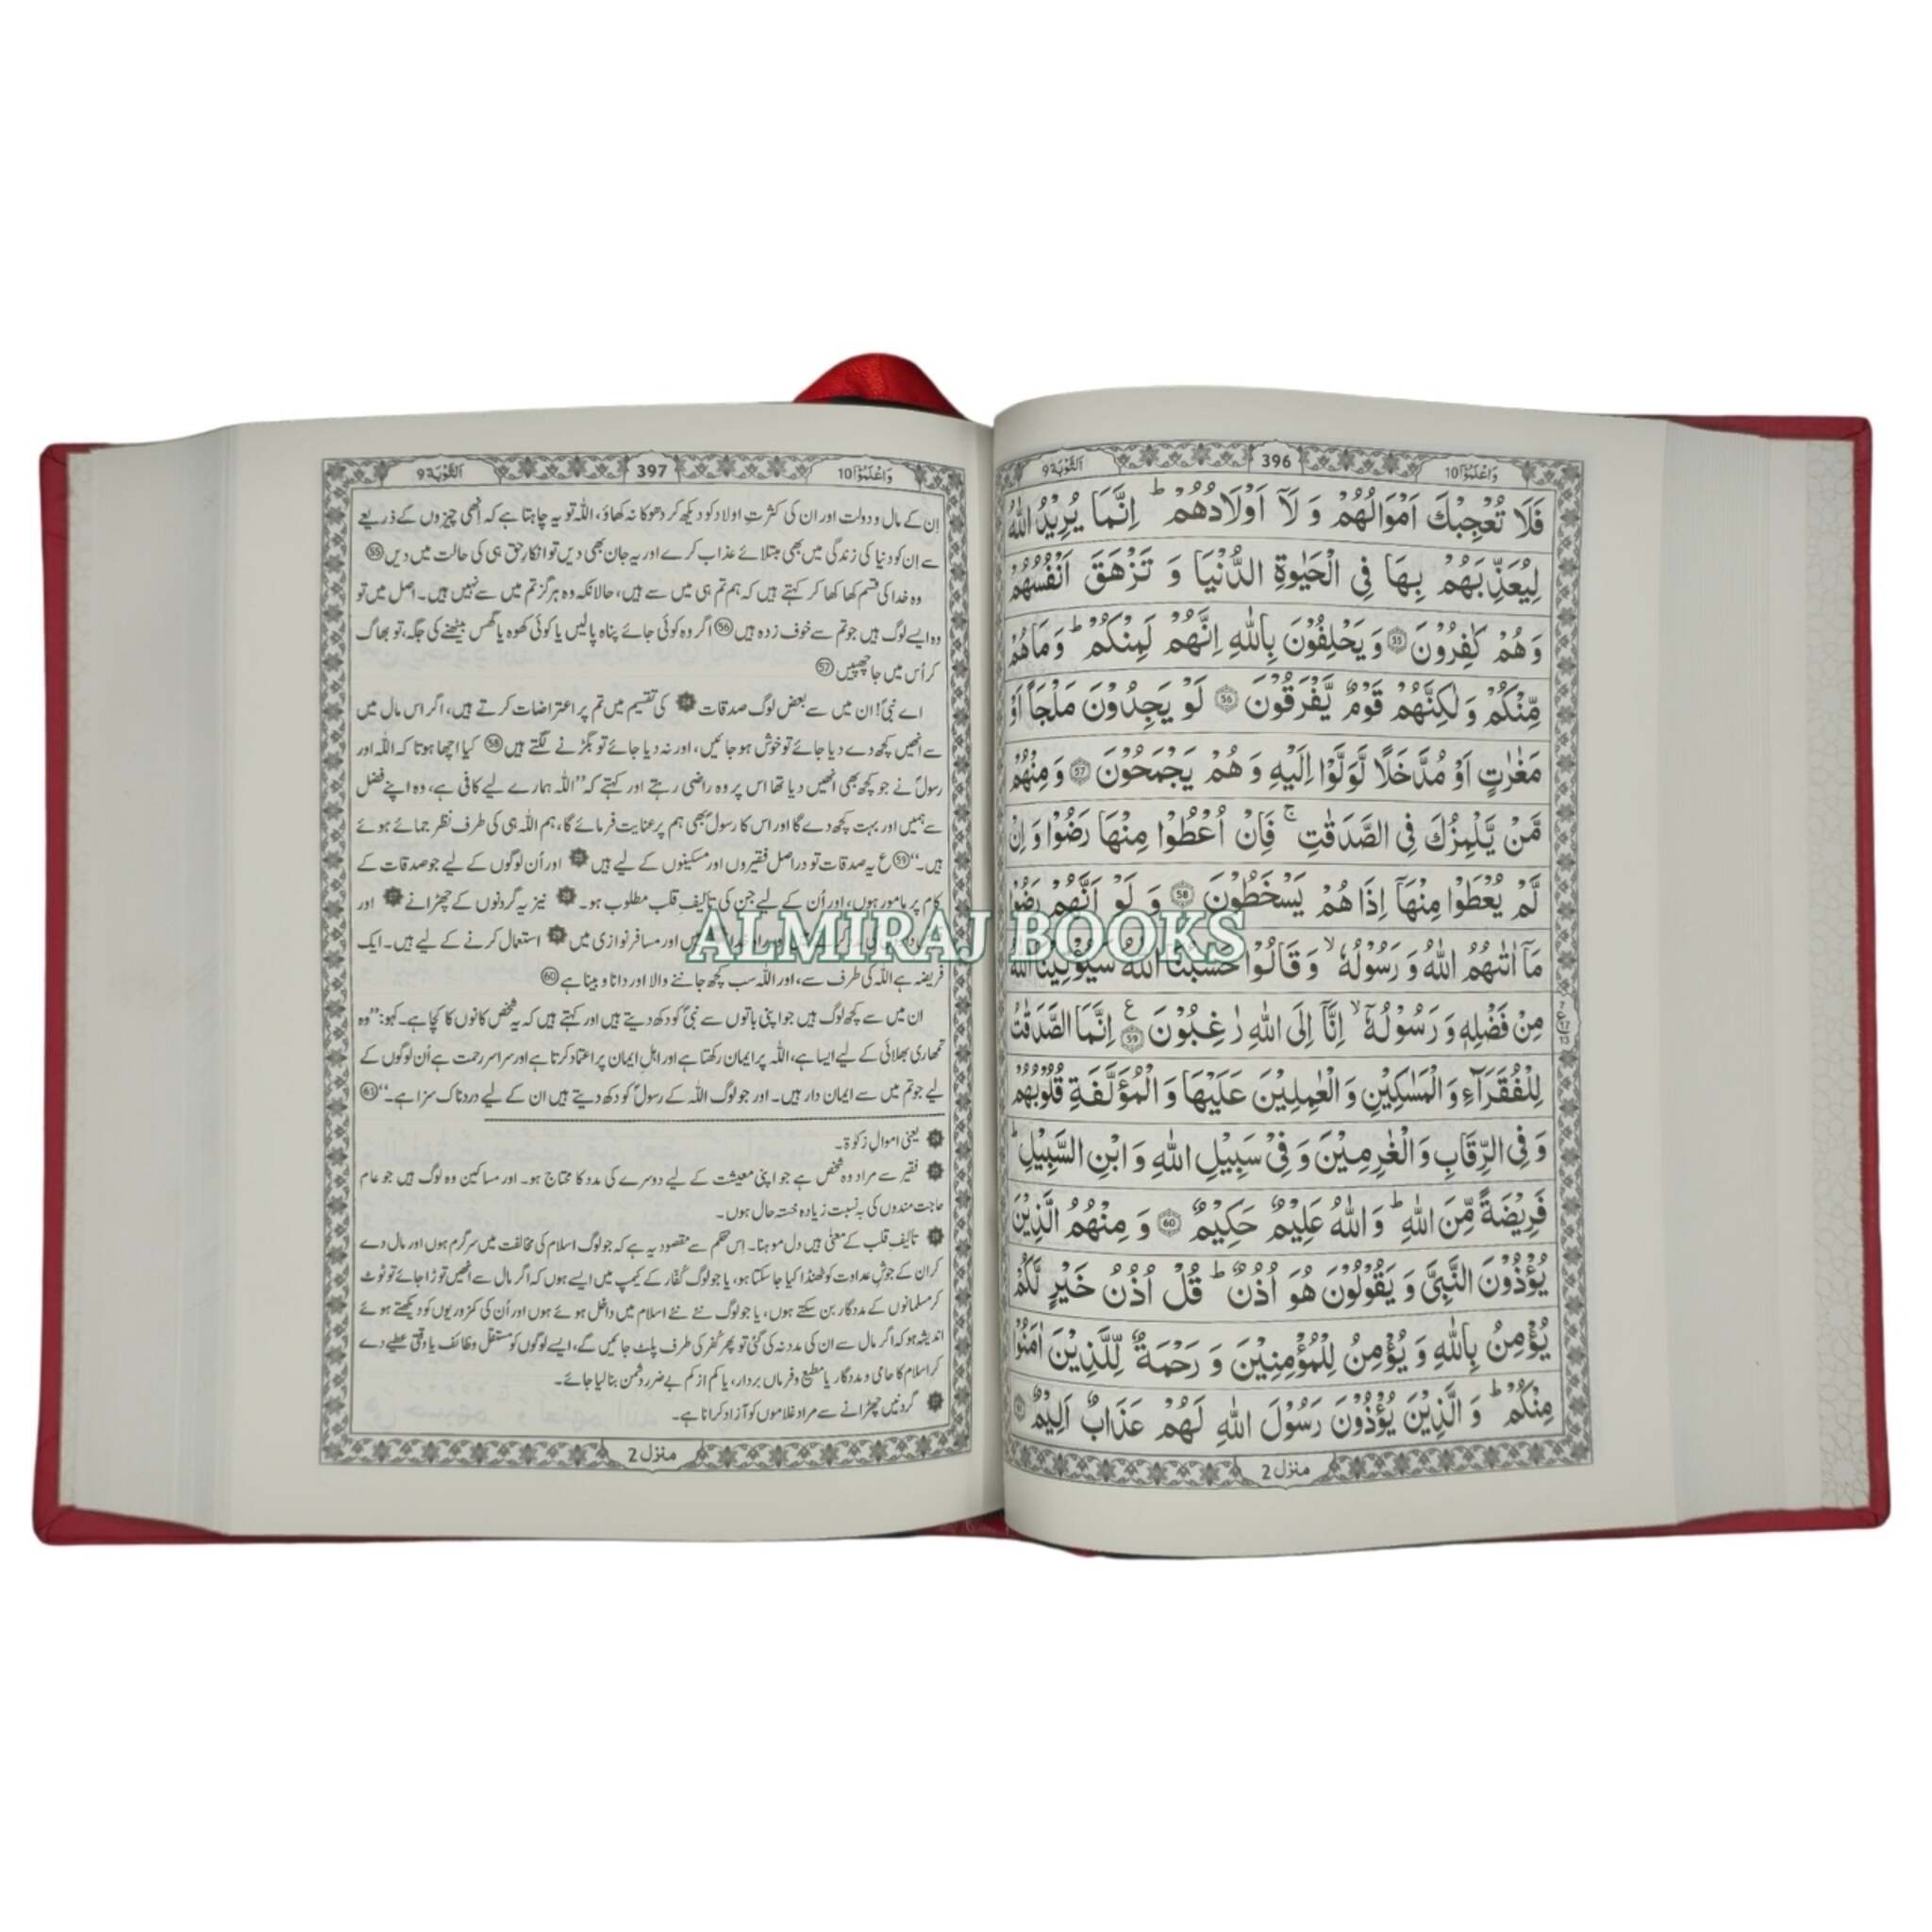 وَاعْلَمُوْٓا 10
396
اَلتَّوْبَة 9
فَلَا تُعْجِبْكَ اَمْوَالُهُمْ وَ لَآ اَوْلَادُهُمْ ؕ اِنَّمَا يُرِيْدُ اللّٰهُ
لِيُعَذِّبَهُمْ بِهَا فِي الْحَيٰوةِ الدُّنْيَا وَ تَزْهَقَ اَنْفُسُهُمْ
وَهُمْ كٰفِرُوْنَ 55 وَيَحْلِفُوْنَ بِاللّٰهِ اِنَّهُمْ لَمِنْكُمْ ؕ وَمَا هُمْ
مِّنْكُمْ وَلٰكِنَّهُمْ قَوْمٌ يَّفْرَقُوْنَ 56 لَوْ يَجِدُوْنَ مَلْجَاً اَوْ
مَغٰرٰتٍ اَوْ مُدَّخَلًا لَّوَلَّوْا اِلَيْهِ وَهُمْ يَجْمَحُوْنَ 57 وَمِنْهُمْ
مَّنْ يَّلْمِزُكَ فِي الصَّدَقٰتِ ۚ فَاِنْ اُعْطُوْا مِنْهَا رَضُوْا وَ اِنْ
لَّمْ يُعْطَوْا مِنْهَآ اِذَا هُمْ يَسْخَطُوْنَ 58 وَ لَوْ اَنَّهُمْ رَضُوْا
مَآ اٰتٰىهُمُ اللّٰهُ وَ رَسُوْلُهٗ ۙ وَقَالُوْا حَسْبُنَا اللّٰهُ سَيُؤْتِيْنَا اللّٰهُ
مِنْ فَضْلِهٖ وَ رَسُوْلُهٗٓ ۙ اِنَّآ اِلَى اللّٰهِ رٰغِبُوْنَ 59 ع اِنَّمَا الصَّدَقٰتُ
لِلْفُقَرَآءِ وَالْمَسٰكِيْنِ وَالْعٰمِلِيْنَ عَلَيْهَا وَالْمُؤَلَّفَةِ قُلُوْبُهُمْ
وَفِي الرِّقَابِ وَالْغٰرِمِيْنَ وَفِيْ سَبِيْلِ اللّٰهِ وَابْنِ السَّبِيْلِ ؕ
فَرِيْضَةً مِّنَ اللّٰهِ ؕ وَاللّٰهُ عَلِيْمٌ حَكِيْمٌ 60 وَ مِنْهُمُ الَّذِيْنَ
يُؤْذُوْنَ النَّبِيَّ وَ يَقُوْلُوْنَ هُوَ اُذُنٌ ؕ قُلْ اُذُنُ خَيْرٍ لَّكُمْ
يُؤْمِنُ بِاللّٰهِ وَ يُؤْمِنُ لِلْمُؤْمِنِيْنَ وَ رَحْمَةٌ لِّلَّذِيْنَ اٰمَنُوْا
مِنْكُمْ ؕ وَ الَّذِيْنَ يُؤْذُوْنَ رَسُوْلَ اللّٰهِ لَهُمْ عَذَابٌ اَلِيْمٌ
منزل 2
وَاعْلَمُوْٓا 10
397
اَلتَّوْبَة 9
اِن کے مال و دولت اور ان کی کثرتِ اولاد کو دیکھ کر دھوکا نہ کھاؤ، اللّٰہ تو یہ چاہتا ہے کہ اِنھی چیزوں کے ذریعے
سے اِن کو دنیا کی زندگی میں بھی مبتلائے عذاب کرے اور یہ جان بھی دیں تو انکارِ حق ہی کی حالت میں دیں 55
وہ خدا کی قسم کھا کھا کر کہتے ہیں کہ ہم تم ہی میں سے ہیں، حالانکہ وہ ہرگز تم میں سے نہیں ہیں۔ اصل میں تو
وہ ایسے لوگ ہیں جو تم سے خوف زدہ ہیں 56 اگر وہ کوئی جائے پناہ پا لیں یا کوئی کھوہ یا گھس بیٹھنے کی جگہ، تو بھاگ
کر اُس میں جا چھپیں 57
اے نبیؐ! ان میں سے بعض لوگ صدقات کی تقسیم میں تم پر اعتراضات کرتے ہیں، اگر اس مال میں
سے انھیں کچھ دے دیا جائے تو خوش ہو جائیں، اور نہ دیا جائے تو بگڑنے لگتے ہیں 58 کیا اچھا ہوتا کہ اللّٰہ اور
رسولؐ نے جو کچھ بھی انھیں دیا تھا اس پر وہ راضی رہتے اور کہتے کہ ”اللّٰہ ہمارے لیے کافی ہے، وہ اپنے فضل
سے ہمیں اور بہت کچھ دے گا اور اس کا رسولؐ بھی ہم پر عنایت فرمائے گا، ہم اللّٰہ ہی کی طرف نظر جمائے ہوئے
ہیں۔“ 59 ع یہ صدقات تو دراصل فقیروں اور مسکینوں کے لیے ہیں اور اُن لوگوں کے لیے جو صدقات کے
کام پر مامور ہوں، اور اُن کے لیے جن کی تالیفِ قلب مطلوب ہو۔ نیز یہ گردنوں کے چھڑانے اور
اور مسافر نوازی میں استعمال کرنے کے لیے ہیں۔ ایک
فریضہ ہے اللّٰہ کی طرف سے، اور اللّٰہ سب کچھ جاننے والا اور دانا و بینا ہے 60
ان میں سے کچھ لوگ ہیں جو اپنی باتوں سے نبیؐ کو دکھ دیتے ہیں اور کہتے ہیں کہ یہ شخص کانوں کا کچا ہے۔ کہو: ”وہ
تمھاری بھلائی کے لیے ایسا ہے، اللّٰہ پر ایمان رکھتا ہے اور اہلِ ایمان پر اعتماد کرتا ہے اور سراسر رحمت ہے اُن لوگوں کے
لیے جو تم میں سے ایمان دار ہیں۔ اور جو لوگ اللّٰہ کے رسولؐ کو دکھ دیتے ہیں ان کے لیے دردناک سزا ہے۔“ 61
یعنی اموالِ زکوٰۃ۔
فقیر سے مراد وہ شخص ہے جو اپنی معیشت کے لیے دوسرے کی مدد کا محتاج ہو۔ اور مساکین وہ لوگ ہیں جو عام
حاجت مندوں کی بہ نسبت زیادہ خستہ حال ہوں۔
تالیفِ قلب کے معنیٰ ہیں دل موہنا۔ اِس حکم سے مقصود یہ ہے کہ جو لوگ اسلام کی مخالفت میں سرگرم ہوں اور مال دے
کر ان کے جوشِ عداوت کو ٹھنڈا کیا جا سکتا ہو، یا جو لوگ کُفّار کے کیمپ میں ایسے ہوں کہ اگر مال سے انھیں توڑا جائے تو ٹوٹ
کر مسلمانوں کے مددگار بن سکتے ہوں، یا جو لوگ نئے نئے اسلام میں داخل ہوئے ہوں اور اُن کی کمزوریوں کو دیکھتے ہوئے
اندیشہ ہو کہ اگر مال سے ان کی مدد نہ کی گئی تو پھر کُفر کی طرف پلٹ جائیں گے، ایسے لوگوں کو مستقل وظائف یا وقتی عطیے دے
کر اسلام کا حامی و مددگار یا مطیع و فرماں بردار، یا کم از کم بے ضرر دشمن بنا لیا جائے۔
گردنیں چھڑانے سے مراد غلاموں کو آزاد کرانا ہے۔
منزل 2
ALMIRAJ BOOKS